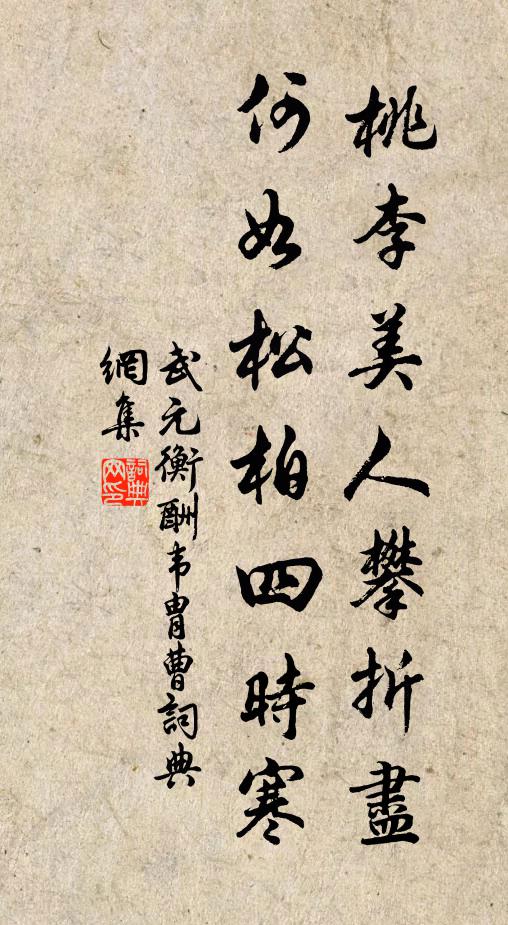 桃李美人攀折盡
何如松柏四時寒
武元衡酬韦胄曹詞典
網集
詞典网印